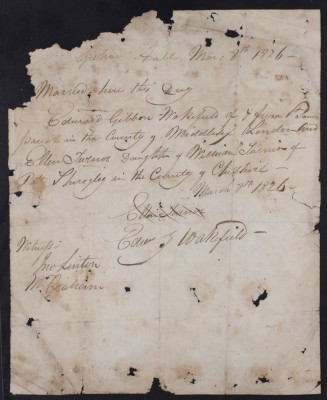 Hall May 8th 1826 -
Married here this Day
Edward Gibbon Wakefield of
parish in the County of Middlesex London and
Ellen Turner Daughter of William Turner of
Pott Shrigley in the County of Cheshire -
March 8th 1826 -
Ellen Turner
Edw G Wakefield -
Witness
Jno Linton
W Graham